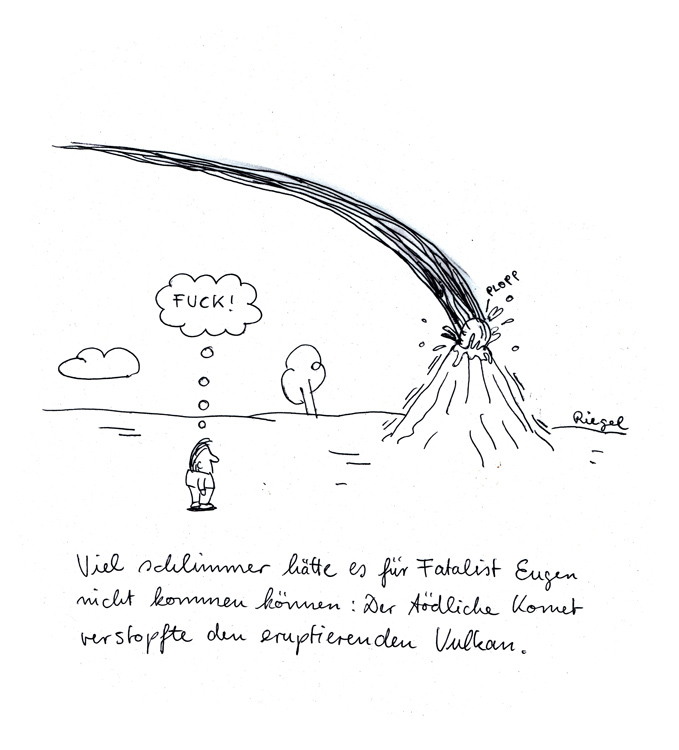 PLOPP
FUCK!
Riegel
Viel schlimmer hätte es für Fatalist Eugen
nicht kommen können: Der tödliche Komet
verstopfte den eruptierenden Vulkan.